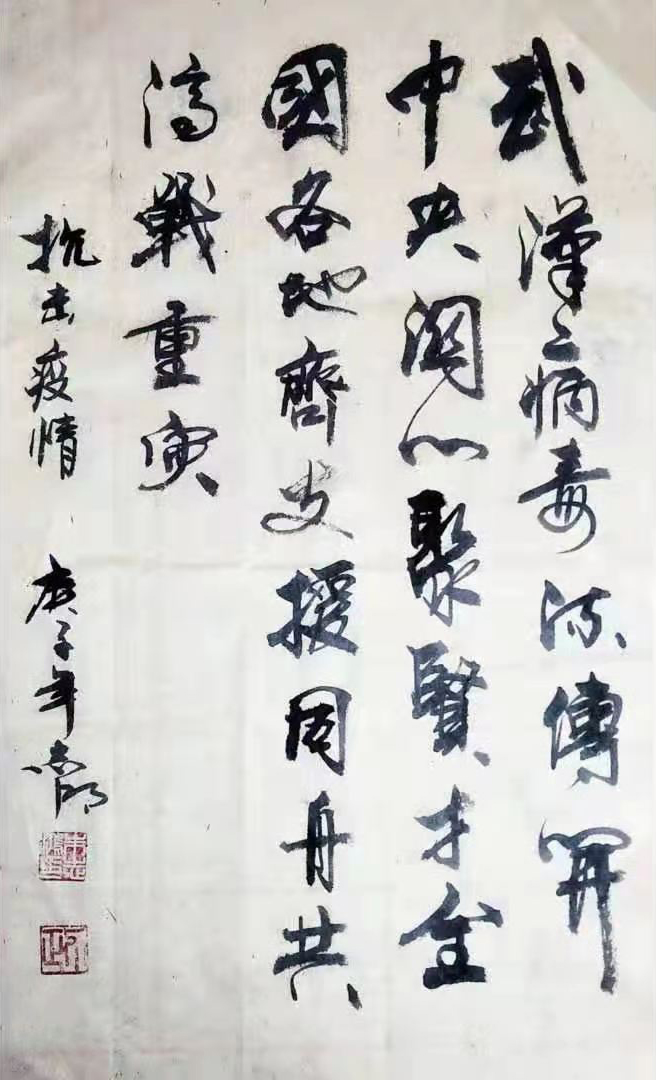 武漢病毒流傳開
中央關心聚賢才全
國各地齊支援同舟共
濟戰重灾
抗击疫情 庚子年志明